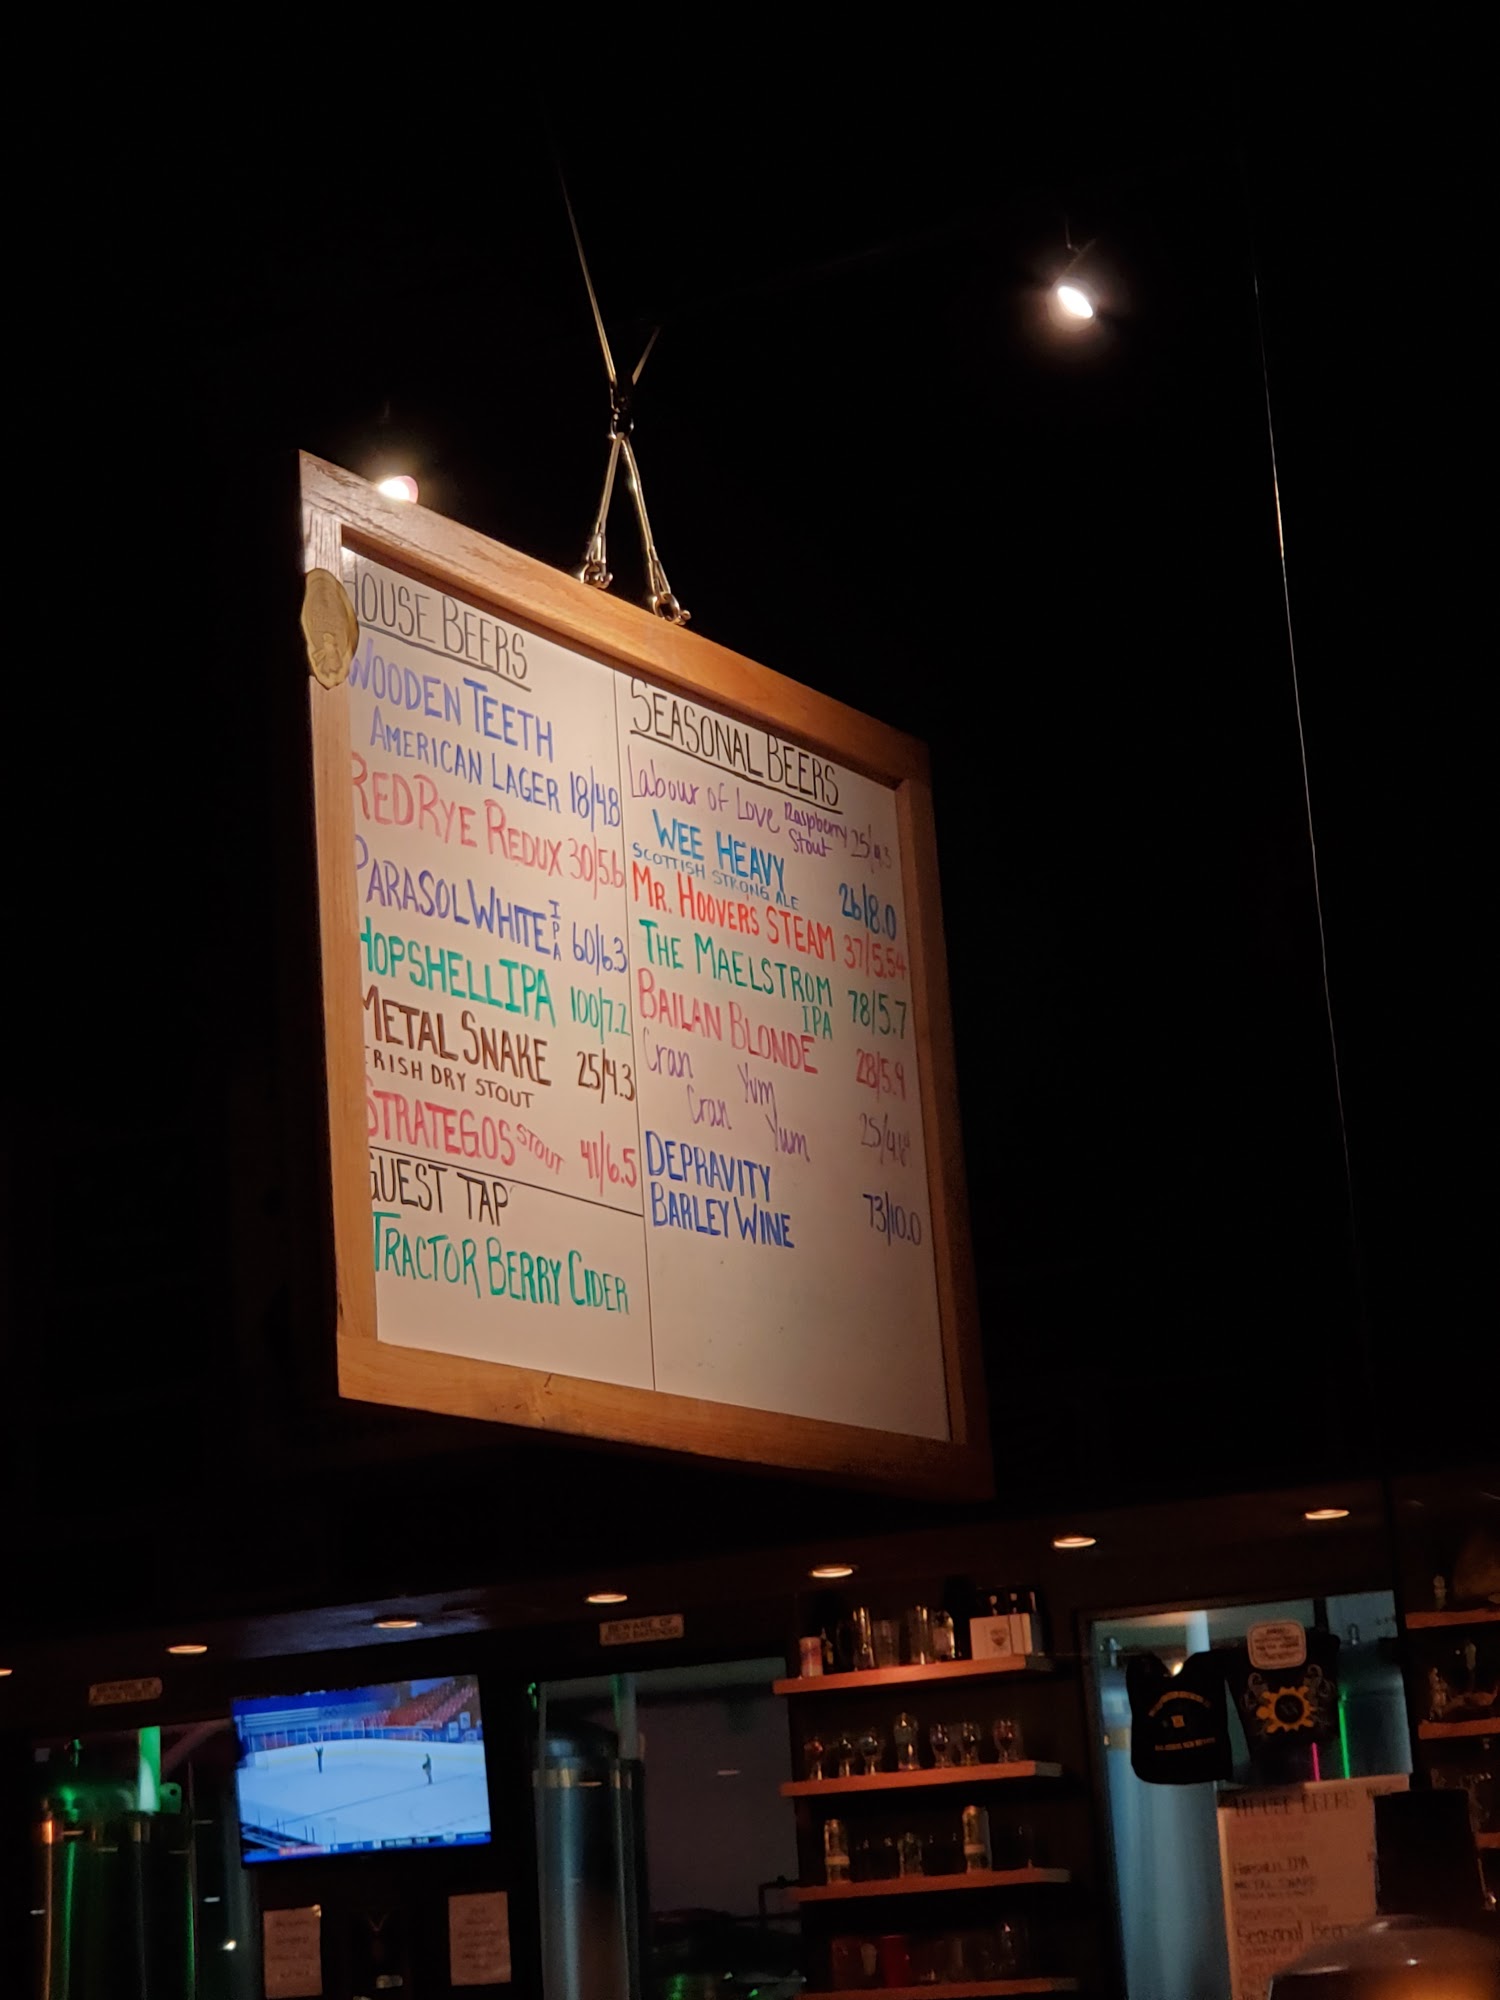 HOUSE BEERS
WOODEN TEETH
AMERICAN LAGER 18/4.8
RED RYE REDUX 30/5.6
PARASOL WHITE IPA 60/6.3
HOPSHELL IPA 100/7.2
METAL SNAKE 25/4.3
IRISH DRY STOUT
STRATEGOS STOUT 41/6.5
GUEST TAP
TRACTOR BERRY CIDER
SEASONAL BEERS
Labour of Love Raspberry
Stout
WEE HEAVY 26/8.0
SCOTTISH STRONG ALE
MR. HOOVERS STEAM 37/5.54
THE MAELSTROM 78/5.7
IPA
BAILAN BLONDE 28/5.9
Cran Yum
Cran Yum
DEPRAVITY
BARLEY WINE 73/10.0
BEWARE OF
HOUSE BEERS
HOPSHELL IPA
METAL SNAKE
Seasonal Beers